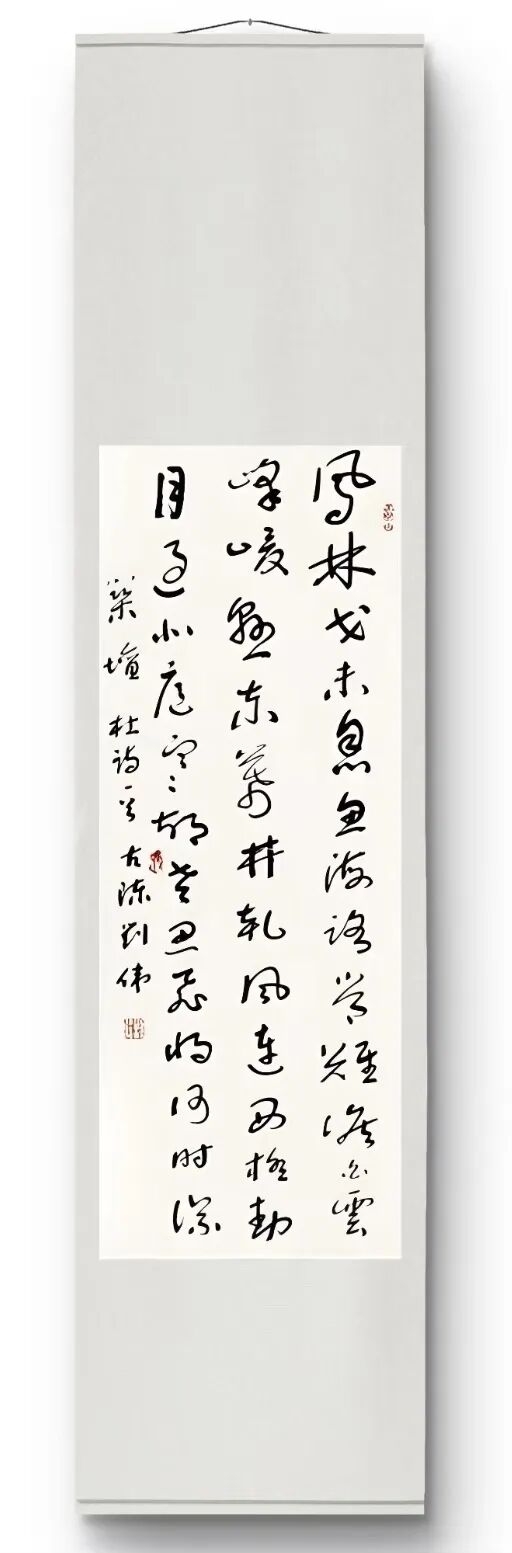 鳳林戈未息魚海路常難候火雲
峰峻懸軍幕井乾風連西極動
月過北庭寒故老思飛將何時議
築壇 杜詩一首 古陳劉偉